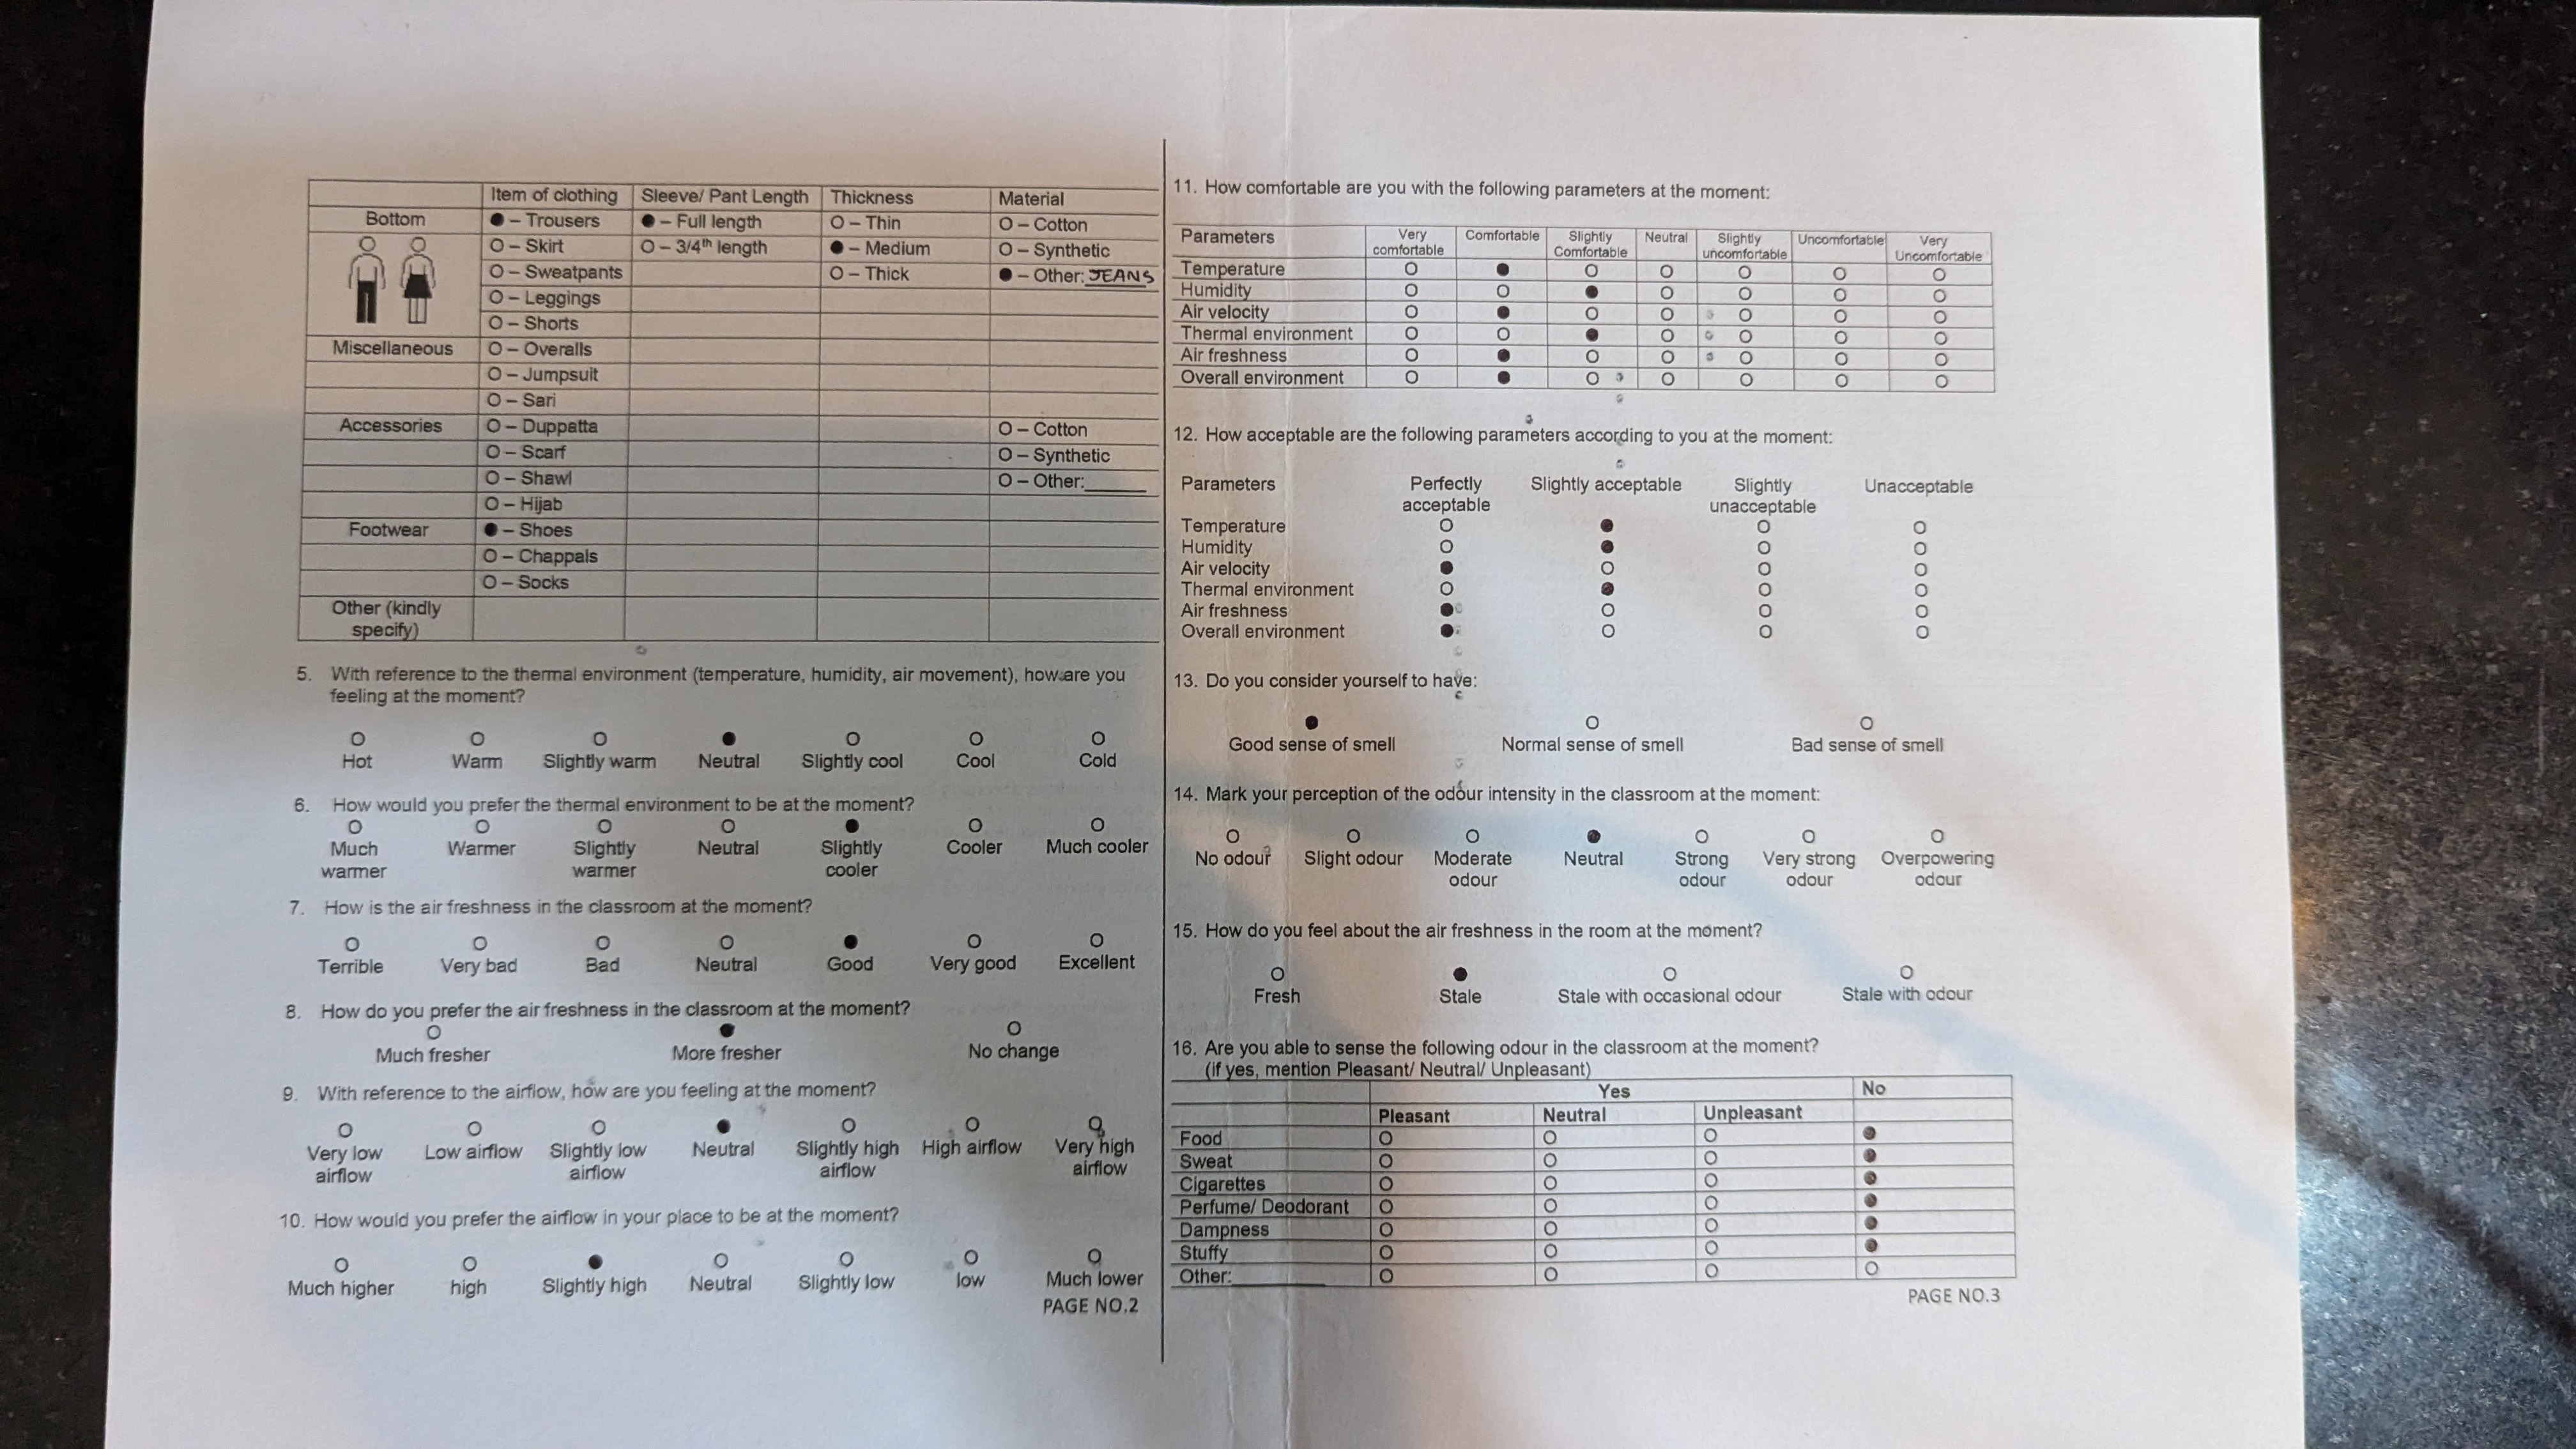 Item of clothing Sleeve/ Pant Length Thickness Material
Bottom ● – Trousers ● – Full length O – Thin O – Cotton
O – Skirt O – 3/4th length ● – Medium O – Synthetic
O – Sweatpants O – Thick ● – Other: JEANS
O – Leggings
O – Shorts
Miscellaneous O – Overalls
O – Jumpsuit
O – Sari
Accessories O – Duppatta O – Cotton
O – Scarf O – Synthetic
O – Shawl O – Other:______
O – Hijab
Footwear ● – Shoes
O – Chappals
O – Socks
Other (kindly
specify)
5. With reference to the thermal environment (temperature, humidity, air movement), how are you
feeling at the moment?
O O O ● O O O
Hot Warm Slightly warm Neutral Slightly cool Cool Cold
6. How would you prefer the thermal environment to be at the moment?
O O O O ● O O
Much Warmer Slightly Neutral Slightly Cooler Much cooler
warmer warmer cooler
7. How is the air freshness in the classroom at the moment?
O O O O ● O O
Terrible Very bad Bad Neutral Good Very good Excellent
8. How do you prefer the air freshness in the classroom at the moment?
O ● O
Much fresher More fresher No change
9. With reference to the airflow, how are you feeling at the moment?
O O O ● O O O
Very low Low airflow Slightly low Neutral Slightly high High airflow Very high
airflow airflow airflow airflow
10. How would you prefer the airflow in your place to be at the moment?
O O ● O O O O
Much higher high Slightly high Neutral Slightly low low Much lower
PAGE NO.2
11. How comfortable are you with the following parameters at the moment:
Parameters Very Comfortable Slightly Neutral Slightly Uncomfortable Very
comfortable Comfortable uncomfortable Uncomfortable
Temperature O ● O O O O O
Humidity O O ● O O O O
Air velocity O ● O O O O O
Thermal environment O O ● O O O O
Air freshness O ● O O O O O
Overall environment O ● O O O O O
12. How acceptable are the following parameters according to you at the moment:
Parameters Perfectly Slightly acceptable Slightly Unacceptable
acceptable unacceptable
Temperature O ● O O
Humidity O ● O O
Air velocity ● O O O
Thermal environment O ● O O
Air freshness ● O O O
Overall environment ● O O O
13. Do you consider yourself to have:
● O O
Good sense of smell Normal sense of smell Bad sense of smell
14. Mark your perception of the odour intensity in the classroom at the moment:
O O O ● O O O
No odour Slight odour Moderate Neutral Strong Very strong Overpowering
odour odour odour odour
15. How do you feel about the air freshness in the room at the moment?
O ● O O
Fresh Stale Stale with occasional odour Stale with odour
16. Are you able to sense the following odour in the classroom at the moment?
(if yes, mention Pleasant/ Neutral/ Unpleasant)
Yes No
Pleasant Neutral Unpleasant
Food O O O ●
Sweat O O O ●
Cigarettes O O O ●
Perfume/ Deodorant O O O ●
Dampness O O O ●
Stuffy O O O ●
Other:_________ O O O O
PAGE NO.3